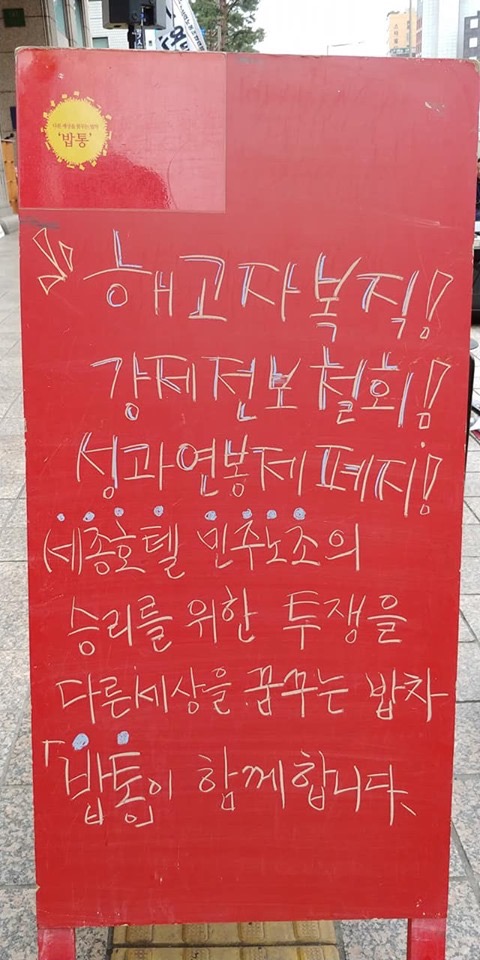 다른 세상을 꿈꾸는 밥차
'밥통'
해고자복직!
강제전보 철회!
성과연봉제 폐지!
세종호텔 민주노조의
승리를 위한 투쟁을
다른세상을 꿈꾸는 밥차
「밥통이 함께합니다.